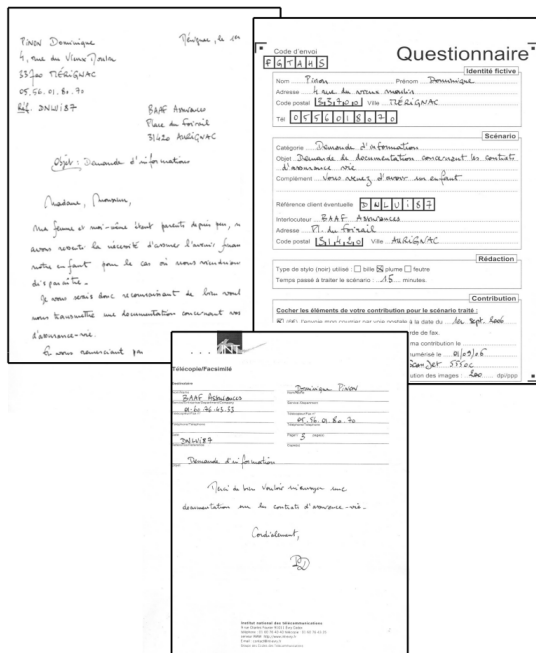 PINON Dominique
4, rue du Vieux Moulin
33700 MÉRIGNAC
05.56.01.80.70
Réf. DNLUi87
Mérignac, le 1er
BAAF Assurances
Place du Foirail
31420 AURIGNAC
Objet : Demande d'informations
Madame, Monsieur,
Ma femme et moi-même étant parents depuis peu, n
avons ressenti la nécessité d'assurer l'avenir finan
notre enfant pour le cas où nous viendrions
disparaître.
Je vous serais donc reconnaissant de bien voul
nous transmettre une documentation concernant vos
d'assurance-vie.
En vous remerciant par
Code d'envoi
FGTAHS
Questionnaire
Identité fictive
Nom Pinon Prénom Dominique
Adresse 4 rue du vieux moulin
Code postal 33700 Ville MÉRIGNAC
Tél 0556018070
Scénario
Catégorie Demande d'information
Objet Demande de documentation concernant les contrats
d'assurance vie
Complément Vous venez d'avoir un enfant
Référence client éventuelle DNLUi87
Interlocuteur BAAF Assurances
Adresse Pl. du Foirail
Code postal 31420 Ville AURIGNAC
Rédaction
Type de stylo (noir) utilisé : bille plume feutre
Temps passé à traiter le scénario : 15 minutes.
Contribution
Cocher les éléments de votre contribution pour le scénario traité :
par voie postale à la date du 1er Sept. 2006
de fax.
ma contribution le
numérisé le 01/09/06
ScanJet 5550c
ution des images : 200 dpi/ppp
Télécopie/Facsimilé
Destinataire
BAAF Assurances
Dominique PINON
01.60.76.43.53
05.56.01.80.70
DNLUi87
5
Demande d'information
Merci de bien vouloir m'envoyer une
documentation sur les contrats d'assurance-vie.
Cordialement,
Institut national des télécommunications